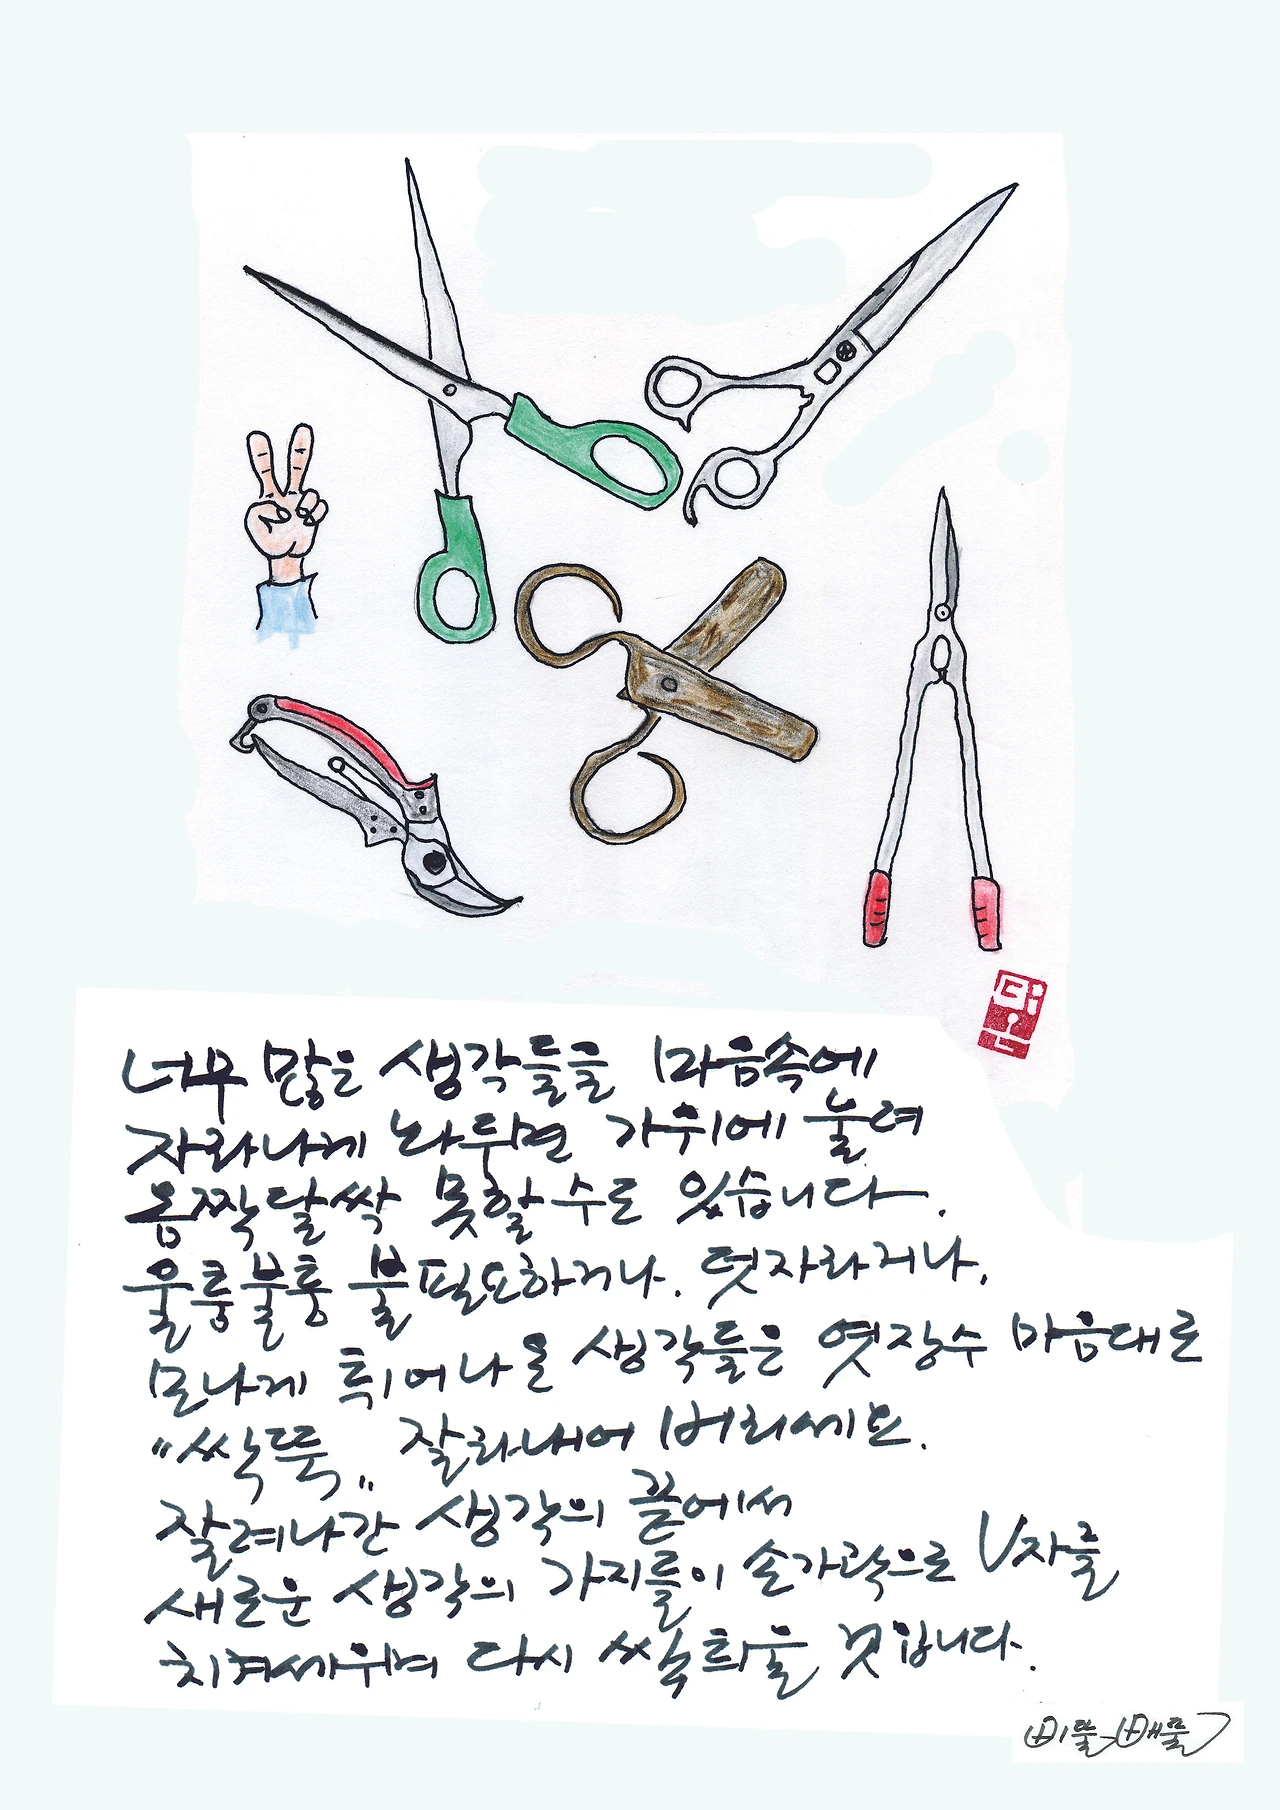 너무 많은 생각들을 마음속에
자라나게 놔두면 가위에 눌려
옴짝달싹 못할 수도 있습니다.
울퉁불퉁 불필요하거나. 덧자라거나.
모나게 튀어나온 생각들은 엿장수 마음대로
"싹뚝" 잘라내어 버리세요.
잘려나간 생각의 끝에서
새로운 생각의 가지들이 손가락으로 V자를
치켜세우며 다시 싹 틔울 것입니다.
삐뚤빼뚤